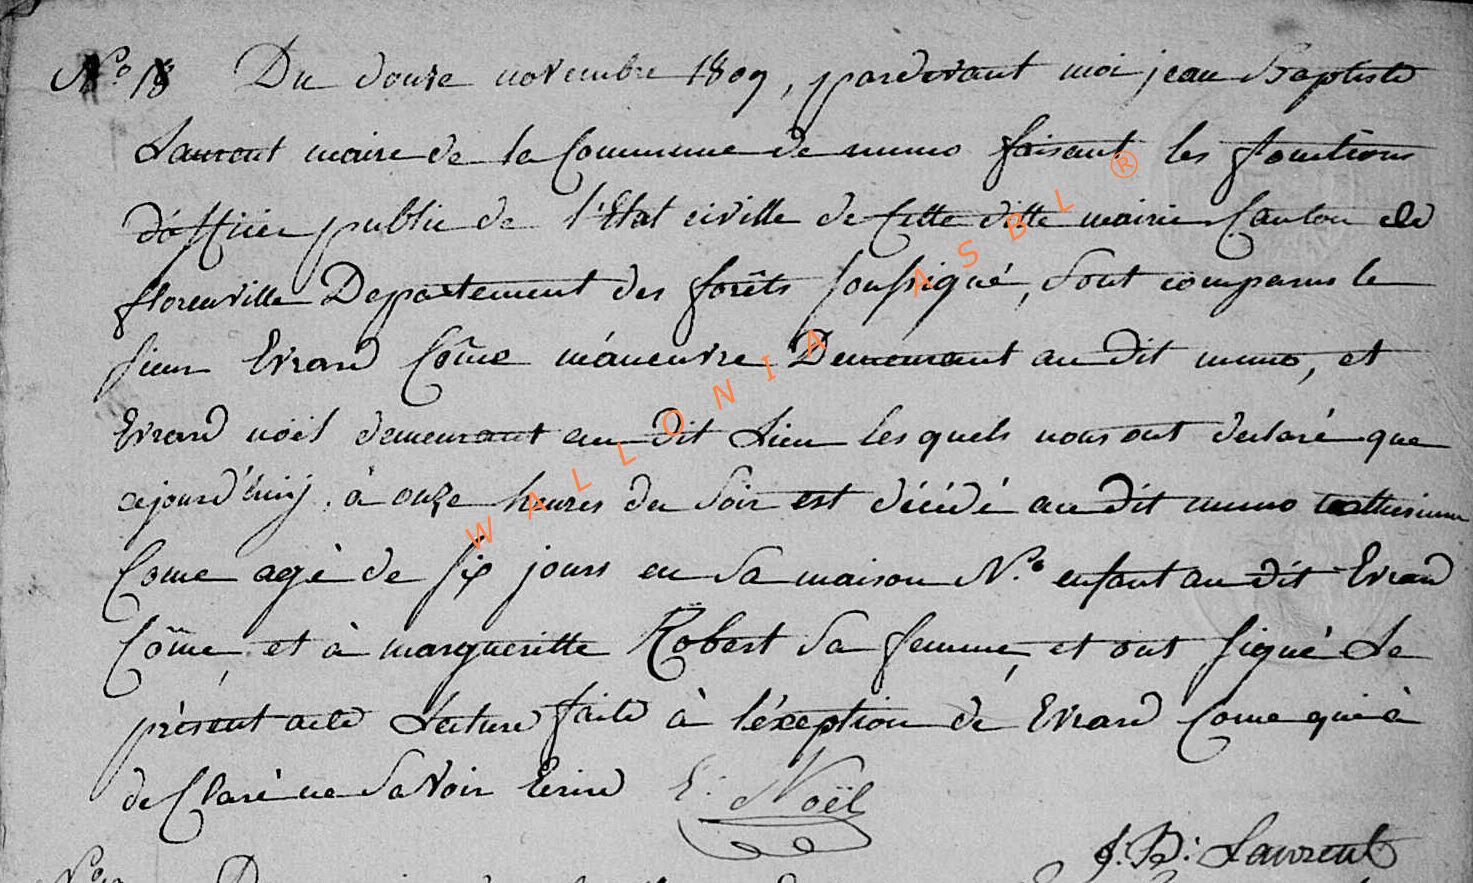 N.° 18 Du douze novembre 1809, pardevant moi jean Baptiste
Laurent maire de la Commune de muno faisant les fonctions
d'officier public de l'Etat civille de Cette ditte mairie Canton de
florenville Departement des forêts soussigné, Sont comparus le
sieur Evrard Côme máneuvre Demeurant au dit muno, et
Evrard noël demeurant au dit Lieu lesquels nous ont declaré que
cejourd'huij, à onze heures du Soir est décédé au dit muno
Come agé de six jours en Sa maison N.° enfant au dit Evrard
Côme, et à margueritte Robert Sa femme, et ont signé Le
présent acte Lecture faite à l'éxeption de Evrard Come qui à
de Claré ne Savoir Ecrire E. Noël
J. B. Laurent
WALLONIA ASBL ®